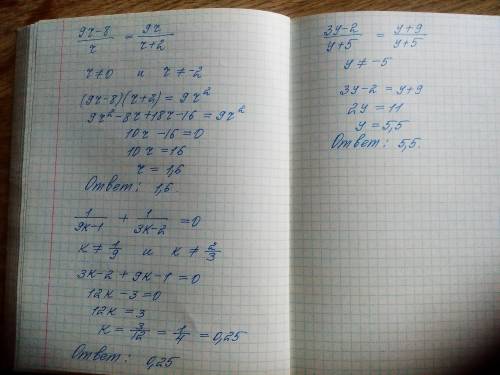 (9r-8)/r = 9r/(r+2)
r≠0 и r≠-2
(9r-8)(r+2)=9r²
9r²-8r+18r-16=9r²
10r-16=0
10r=16
r=1,6
Ответ: 1,6.
1/(9к-1) + 1/(3к-2) =0
к≠1/9 и к≠2/3
3к-2+9к-1=0
12к-3=0
12к=3
к=3/12=1/4=0,25
Ответ: 0,25
(3y-2)/(y+5) = (y+9)/(y+5)
y≠-5
3y-2=y+9
2y=11
y=5,5
Ответ: 5,5.